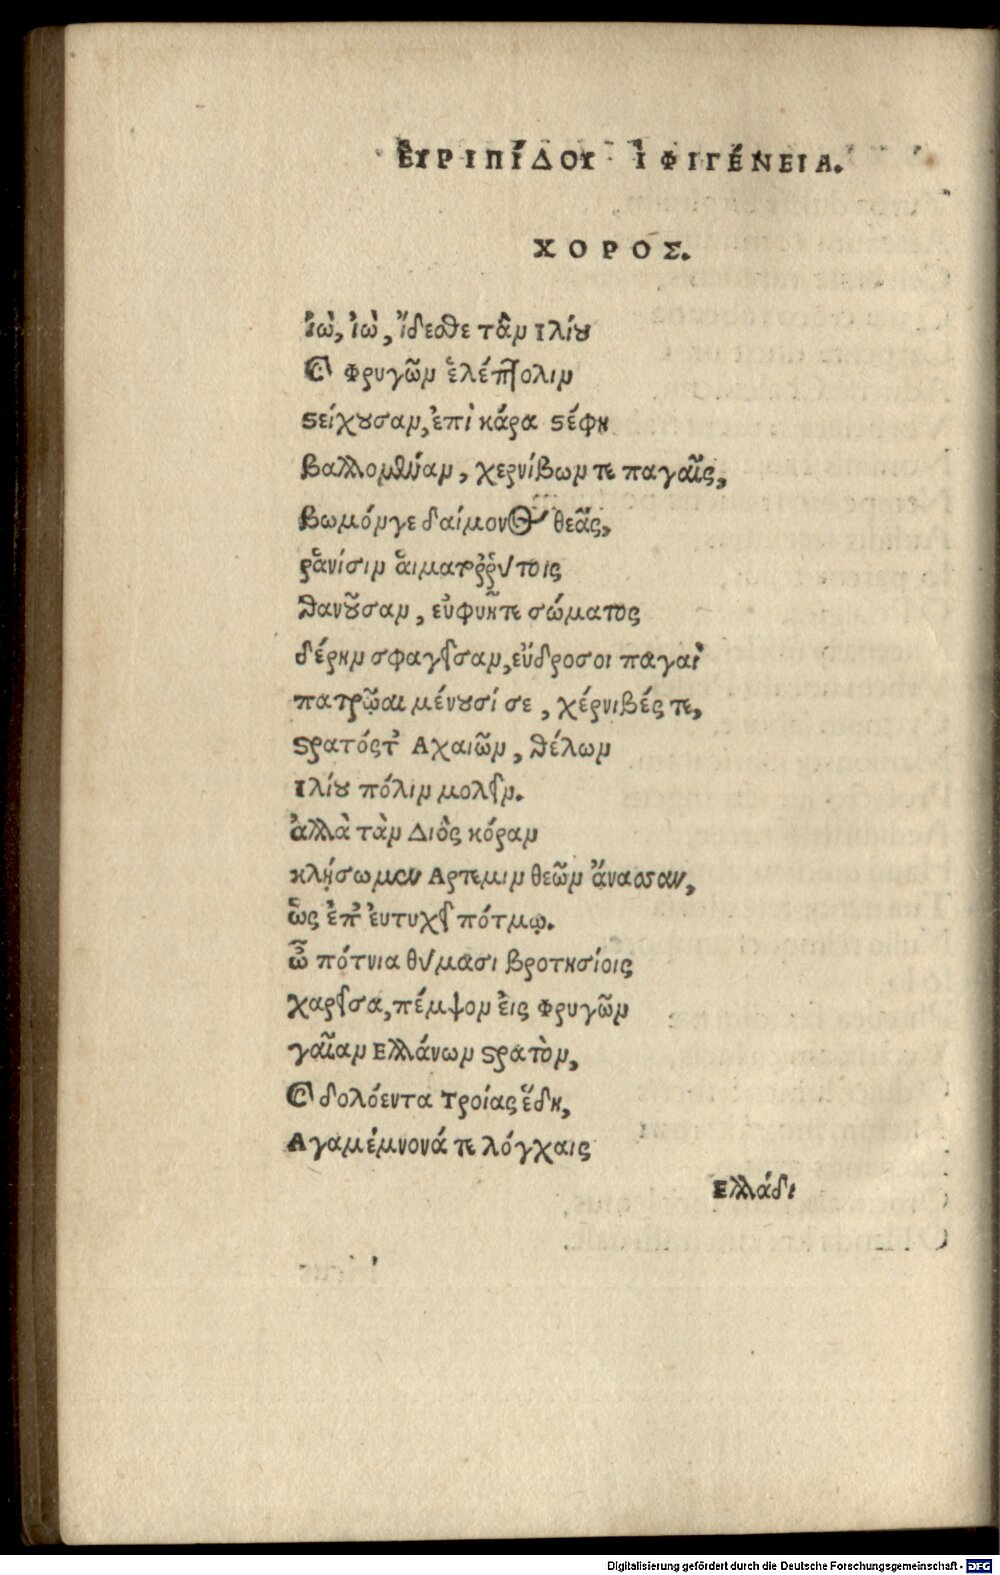 ΕΥΡΙΠΊΔΟΥ ἸΦΙΓΈΝΕΙΑ.
ΧΟΡΟΣ.
ἰὼ, ἰὼ, ἴδεσθε τὰν Ιλίου
καὶ Φρυγῶν ἑλέπτολιν
στείχουσαν, ἐπὶ κάρα στέφη
βαλλομέναν, χερνίβων τε παγαῖς,
βωμόνγε δαίμονος θεᾶς,
ῥανίσιν αἱματορρύτοις
θανοῦσαν, εὐφυῆτε σώματος
δέρην σφαγεῖσαν, εὔδροσοι παγαὶ
πατρῷαι μένουσί σε, χέρνιβές τε,
στρατόςτ' Αχαιῶν, θέλων
Ιλίου πόλιν μολεῖν.
ἀλλὰ τὰν Διὸς κόραν
κλῄσωμεν Αρτεμιν θεῶν ἄνασσαν,
ὡς ἐπ' ἐυτυχεῖ πότμῳ.
ὦ πότνια θύμασι βροτησίοις
χαρεῖσα, πέμψον ἐις Φρυγῶν
γαῖαν Ελλάνων στρατὸν,
καὶ δολόεντα Τροίας ἕδη,
Αγαμέμνονά τε λόγχαις
Ελλάδι
Digitalisierung gefördert durch die Deutsche Forschungsgemeinschaft - DFG